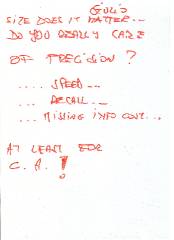 SIZE DOES IT MATTER...
DO YOU REALLY CARE
OF PRECISION ?
.... SPEED...
... RECALL...
... MISSING INFO COST...
AT LEAST FOR
C. A. !